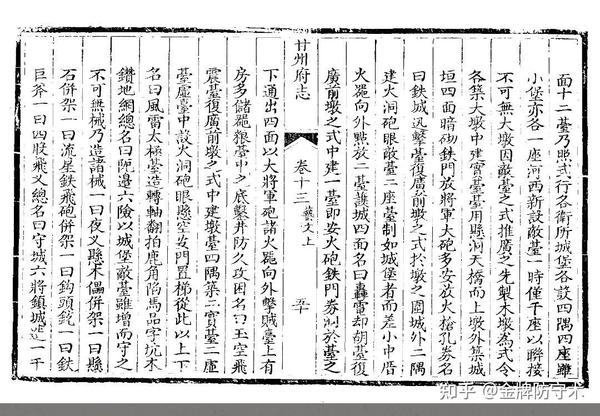 面十二臺乃照式行各衛所城堡各設四隅四座雖
小堡亦各一座河西新設敵臺一時僅千座以聯接
不可無大墩因敵臺之式推廣之先製木墩為式令
各築大墩中建實臺臺用懸洞天橋而上墩外築城
垣四面暗砌鉄門放將軍大砲多安放火槍孔券名
曰鉄城迅擊臺復廣前墩之式於墩之圍城外二隅
建火洞砲眼敵臺二座臺制如城堡者而差小中厝
火噐向外㸃放二臺護城四面名曰轟雷却胡臺復
廣前墩之式中建一臺即安火砲鉄門券洞於臺之
甘州府志
卷十三
藝文上
下通出四面以大將軍砲諸火噐向外擊賊臺上有
房多儲噐粮臺中之底鑿井防久攻困名曰玉空飛
震臺復廣前墩之式中建墩臺四隅築三實臺二座
臺虛臺中設火洞砲眼懸空安門置梯從此以上下
名曰風雷太極臺造轉軸翻拍鹿角陷馬品字坑木
鑽地網總名曰阨邊六險以城堡敵臺雖增而守之
不可無械乃造諸械一曰夜义懸木儡併架一曰懸
石併架一曰流星鉄飛砲併架一曰鈎頭鈗一曰鉄
巨斧一曰四股飛义總名曰守城六將鎮城造一千
知乎 @金牌防守术